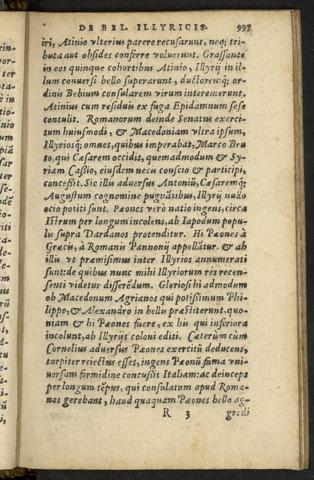 DE BEL. ILLYRICIS. 997
iri, Atinio vlterius parere recusarunt, neq; tri-
buta aut obsides conferre voluerunt. Grassante
in eos quinque cohortibus Atinio, Illyrij in il-
lum conuersi bello superarunt, ductoremq; or-
dinis Bebium consularem virum interemerunt.
Atinius cum residuis ex fuga Epidamnum sese
contulit. Romanorum deinde Senatus exerci-
tum huiusmodi, & Macedoniam vltra ipsum,
Illyriosq; omnes, quibus imperabat, Marco Bru
to, qui Cæsarem occidit, quemadmodum & Sy-
riam Caßio, eiusdem necis conscio & participi,
conceßit. Sic illis aduersus Antoniũ, Cæsaremq;
Augustum cognomine pugnãtibus, Illyrij nullo
ocio potiti sunt. Pæones verò natio ingens, circa
Istrum per longum incolens, ab Iapodum popu-
lis supra Dardanos protenditur. Hi Pæones à
Græcis, à Romanis Pannonij appellãtur. & ab
illis vt præmisimus inter Illyrios annumerati
sunt: de quibus nunc mihi Illyriorum res recen-
senti videtur disserẽdum. Gloriosi hi admodum
ob Macedonum Agrianos qui potißimum Phi-
lippo, & Alexandro in bellis præstiterunt. quo-
niam & hi Pæones fuere, ex his qui inferiora
incolunt, ab Illyrijs coloni editi. Cæterùm cùm
Cornelius aduersus Pæones exercitũ deducens,
turpiter reiectus esset, ingens Pæonũ fama vni-
uersam formidine concußit Italiam: ac deinceps
per longum tẽpus, qui consulatum apud Roma-
nos gerebant, haud quaquam Pæones bello ag-
R 3 gredi